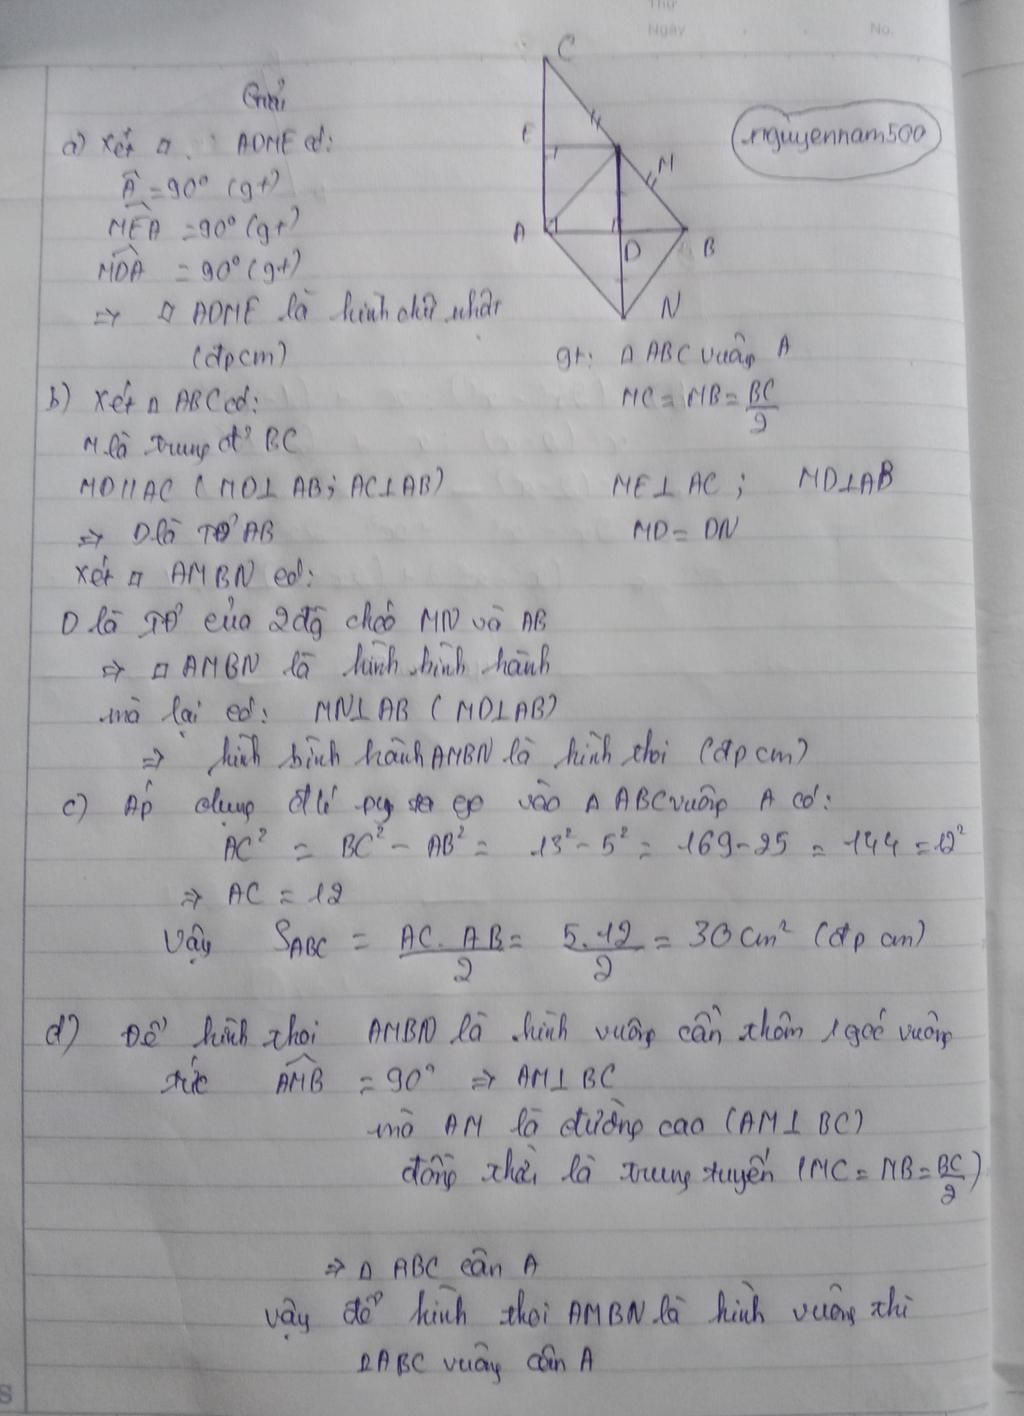 Thứ
Ngày No.
Giải
nguyennam500
a) Xét □ ADME có:
Â = 90° (gt)
MÊA = 90° (gt)
MDA = 90° (gt)
=> □ ADME là hình chữ nhật
(đpcm)
C
E
M
A
D
B
N
gt: Δ ABC vuông A
MC = MB = BC/2
ME ⊥ AC ; MD ⊥ AB
MD = DN
b) Xét Δ ABC có:
M là trung đ' BC
MD // AC ( MD ⊥ AB; AC ⊥ AB)
=> D là TĐ' AB
Xét □ AMBN có:
D là TĐ' của 2 đg chéo MN và AB
=> □ AMBN là hình bình hành
mà lại có: MN ⊥ AB ( MD ⊥ AB)
=> hình bình hành AMBN là hình thoi (đpcm)
c) Áp dụng đ lí py ta go vào Δ ABC vuông A có:
AC² = BC² - AB² = 13² - 5² = 169 - 25 = 144 = 12²
=> AC = 12
Vậy S_ABC = AC. AB/2 = 5.12/2 = 30 cm² (đpcm)
d) Để hình thoi AMBN là hình vuông cần thêm 1 góc vuông
tức AMB = 90° => AM ⊥ BC
mà AM là đường cao (AM ⊥ BC)
đồng thời là trung tuyến (MC = MB = BC/2)
=> Δ ABC cân A
Vậy để hình thoi AMBN là hình vuông thì
Δ ABC vuông cân A
S